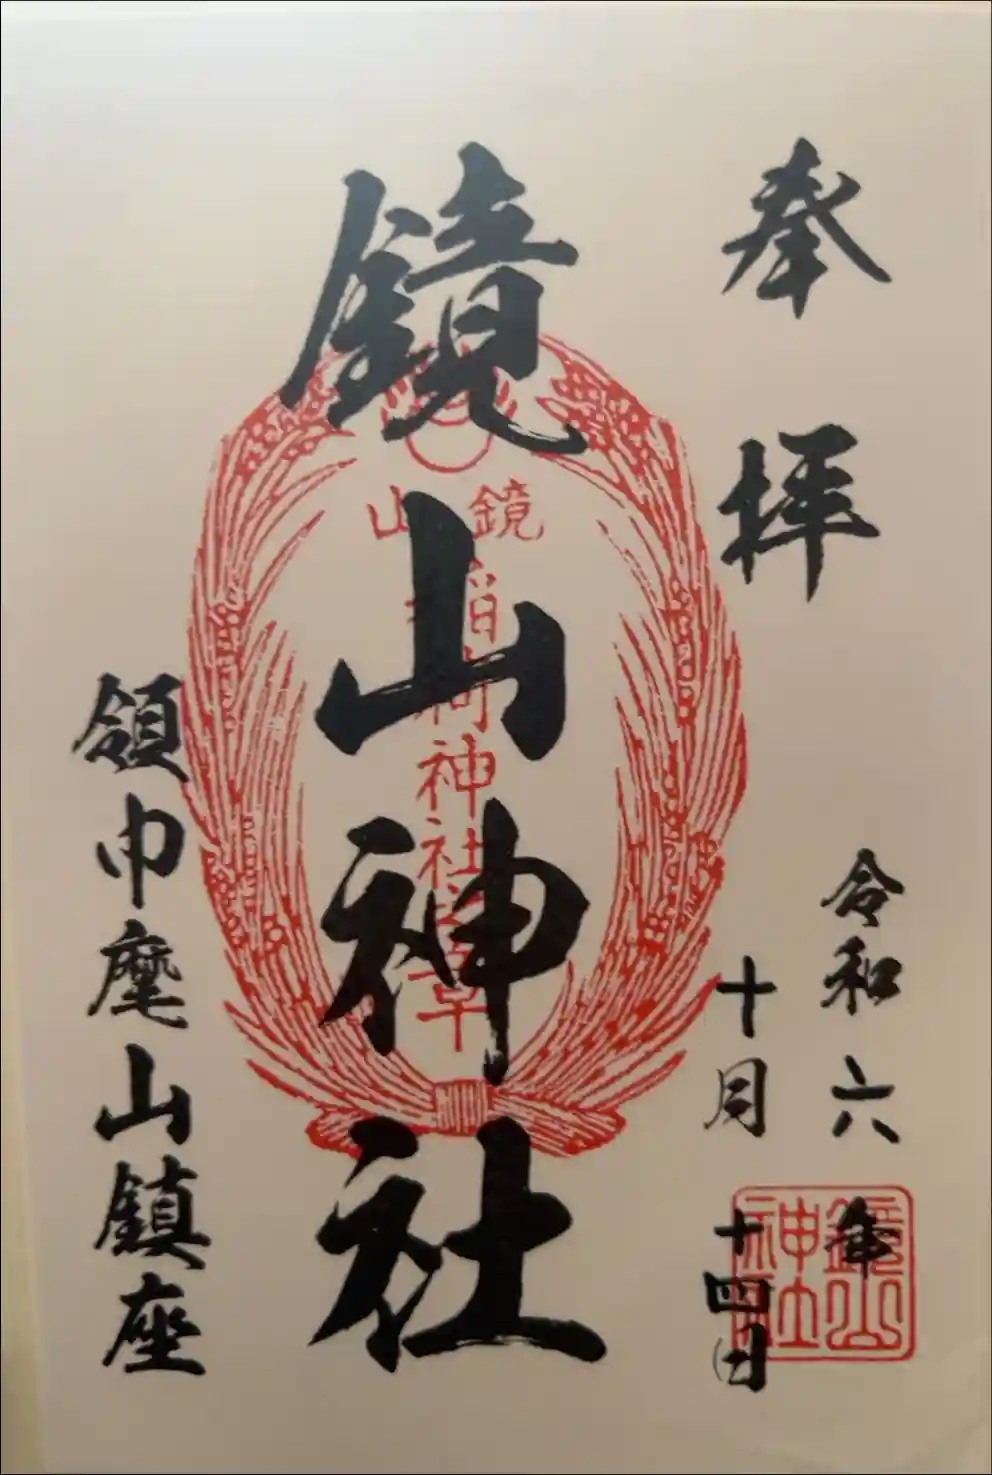 奉拝
令和六年
十月十四日
鏡山神社
鏡山
稲荷神社
領巾麾山鎮座
鏡山
神社